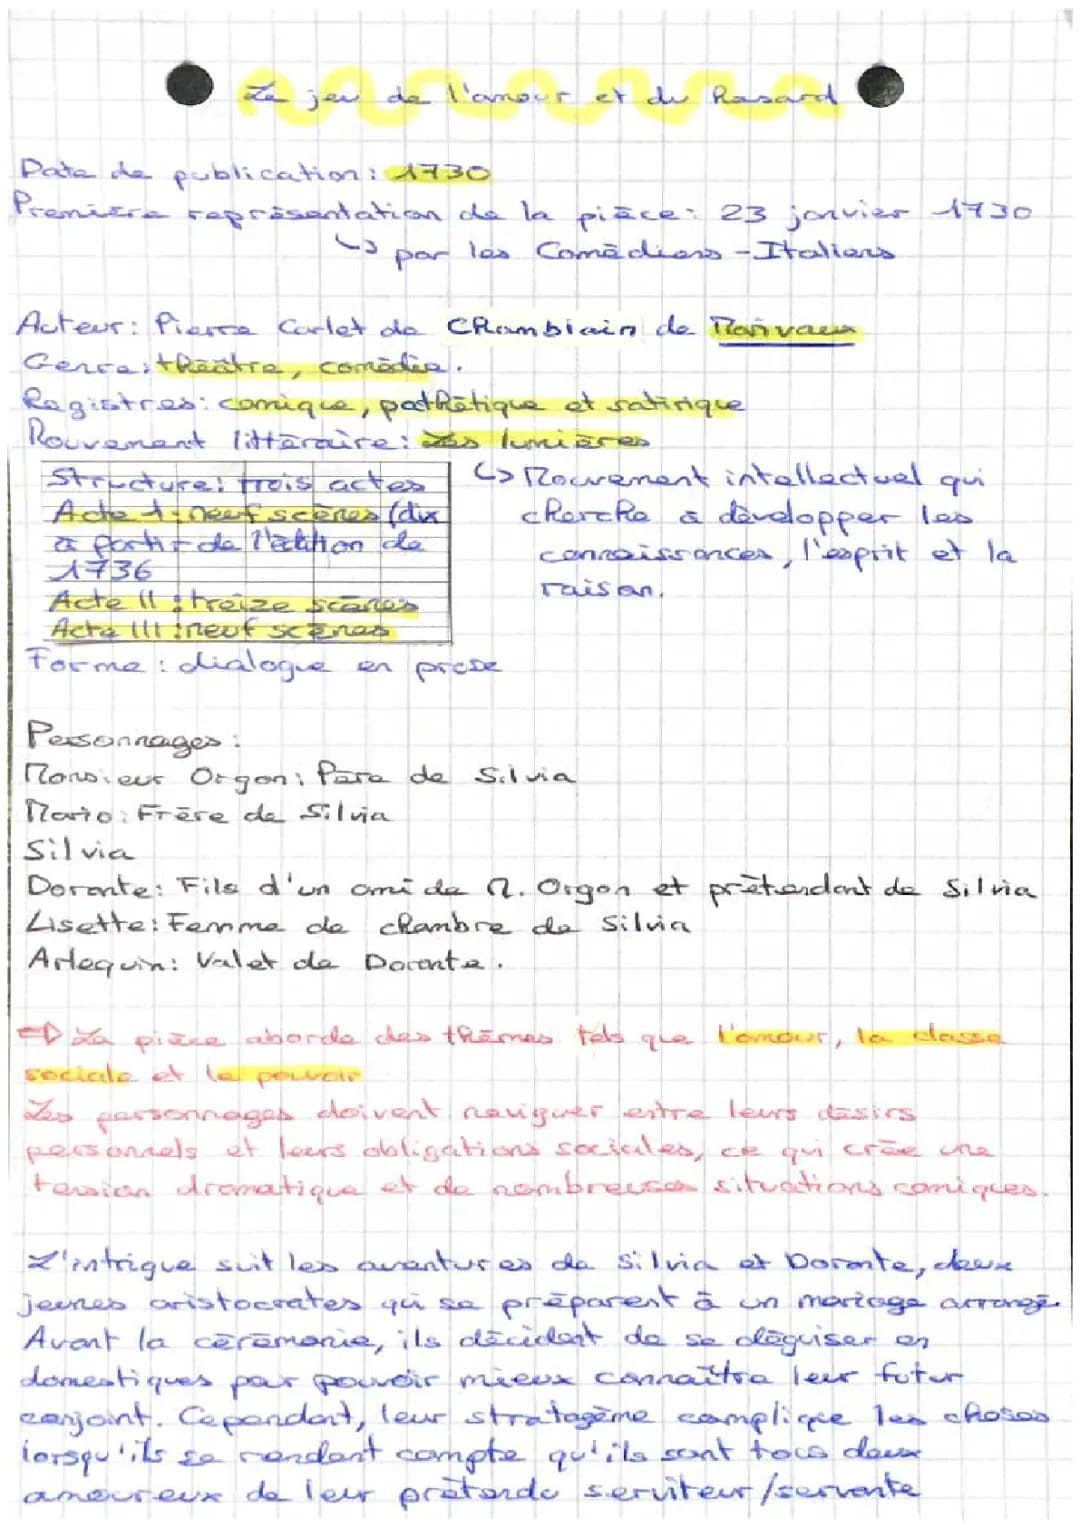 Le jeu de l'amour et du hasard
Date de publication : 1730
Première représentation de la pièce : 23 janvier 1730
↳ par les Comédiens-Italiens
Auteur : Pierre Carlet de Chamblain de Marivaux
Genre : théâtre, comédie.
Registres : comique, pathétique et satirique
Mouvement littéraire : Les lumières
↳ Mouvement intellectuel qui
cherche à développer les
connaissances, l'esprit et la
raison.
Structure : trois actes
Acte 1 : neuf scènes (dix
à partir de l'édition de
1736
Acte II : treize scènes
Acte III : neuf scènes
Forme : dialogue en prose
Personnages :
Monsieur Orgon : Père de Silvia
Mario : Frère de Silvia
Silvia
Dorante : Fils d'un ami de M. Orgon et prétendant de Silvia
Lisette : Femme de chambre de Silvia
Arlequin : Valet de Dorante.
⇒ La pièce aborde des thèmes tels que l'amour, la classe
sociale et le pouvoir
Les personnages doivent naviguer entre leurs désirs
personnels et leurs obligations sociales, ce qui crée une
tension dramatique et de nombreuses situations comiques.
L'intrigue suit les aventures de Silvia et Dorante, deux
jeunes aristocrates qui se préparent à un mariage arrangé.
Avant la cérémonie, ils décident de se déguiser en
domestiques par pouvoir mieux connaître leur futur
conjoint. Cependant, leur stratagème complique les choses
lorsqu'ils se rendent compte qu'ils sont tous deux
amoureux de leur prétendu serviteur/servante